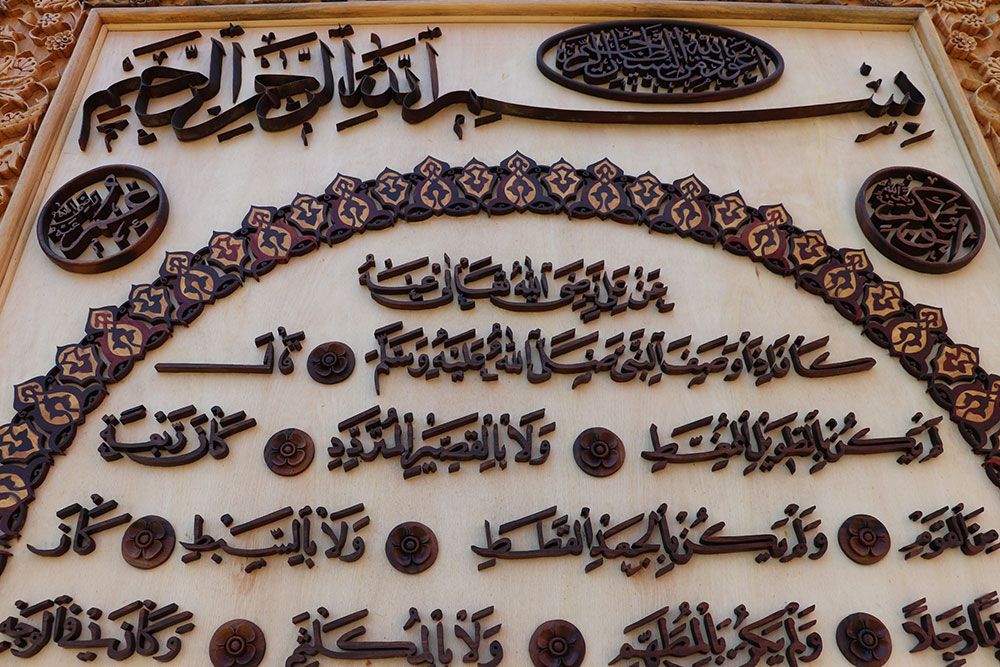 بسم الله الرحمن الرحيم
ابو بكر رضي الله عنه
عمر رضي الله عنه
عَنْ عَلِيٍّ رَضِيَ اللهُ تَعَالَى عَنْهُ
كَانَ إِذَا وَصَفَ النَّبِيَّ صَلَّى اللهُ عَلَيْهِ وَسَلَّمَ قَالَ
لَمْ يَكُنْ بِالطَّوِيلِ الْمُمَغَّطِ وَلَا بِالْقَصِيرِ الْمُتَرَدِّدِ كَانَ رَبْعَةً
مِنَ الْقَوْمِ وَلَمْ يَكُنْ بِالْجَعْدِ الْقَطَطِ وَلَا بِالسَّبِطِ كَانَ
رَجِلًا وَلَمْ يَكُنْ بِالْمُطَهَّمِ وَلَا بِالْمُكَلْثَمِ وَكَانَ فِي الْوَجْهِ